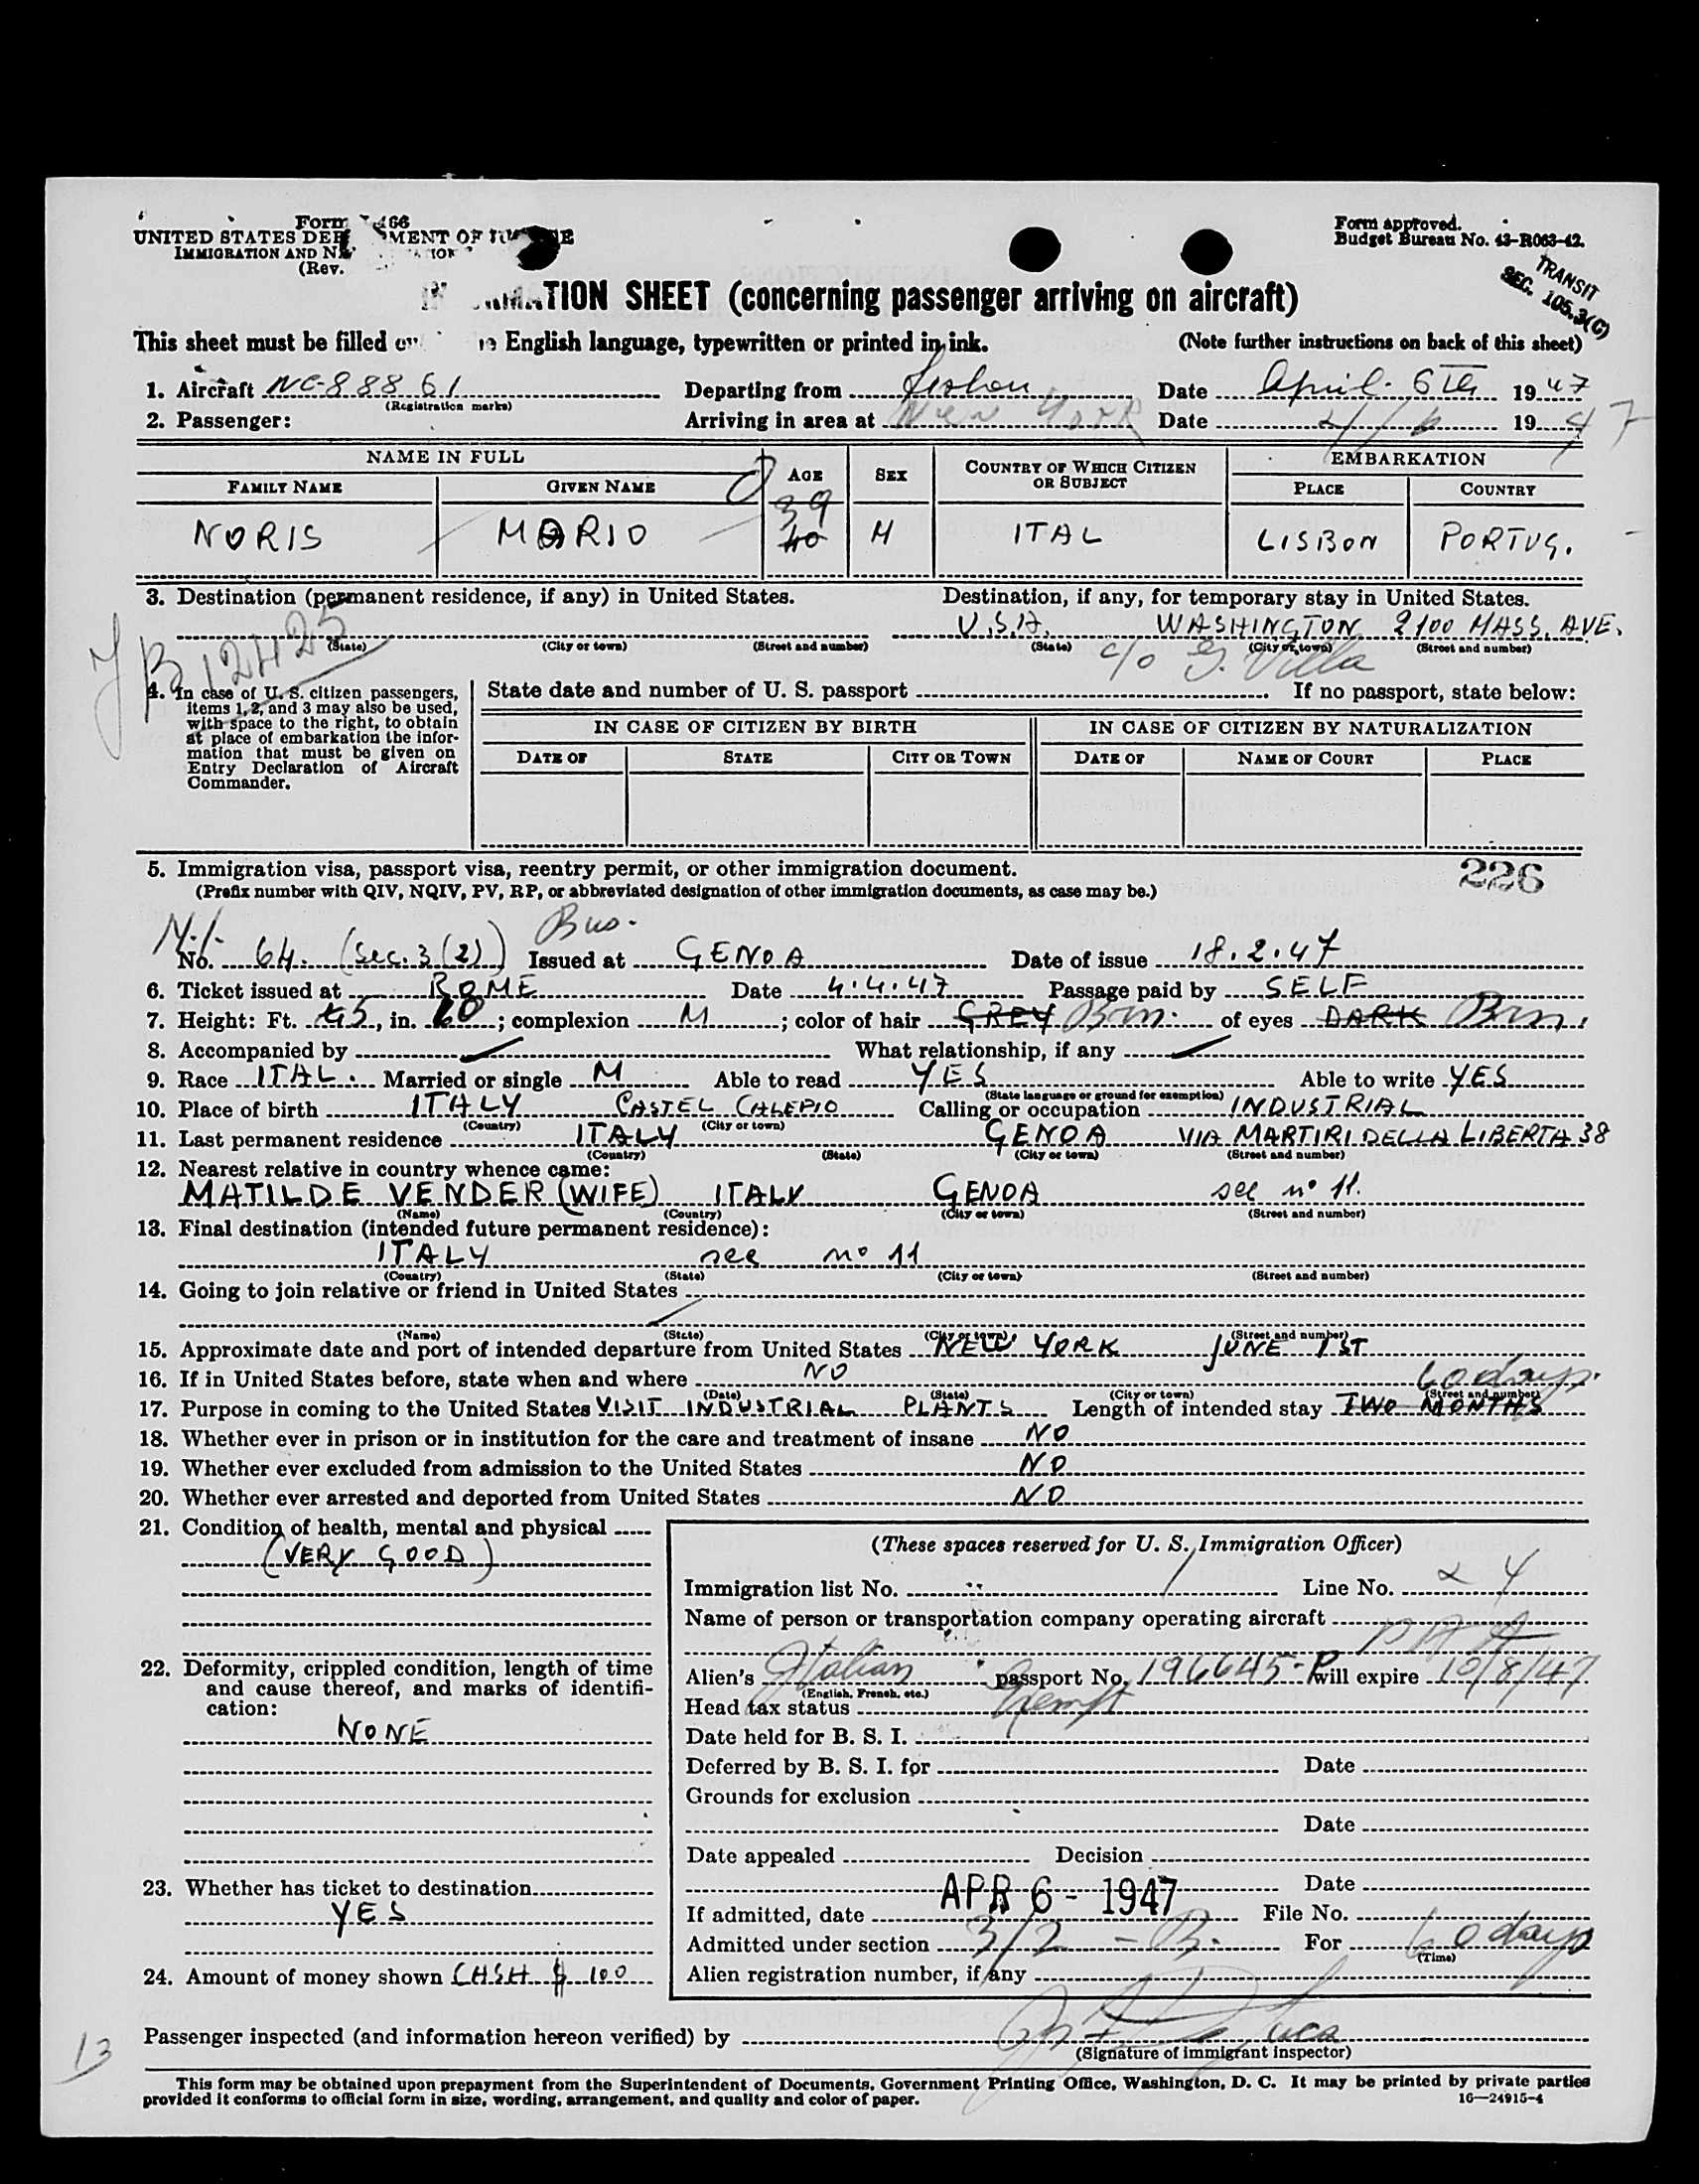 Form 466
UNITED STATES DEP MENT OF
IMMIGRATION AND
(Rev.
Form approved.
Budget Bureau No. 43-R063-42.
TRANSIT
SEC. 105.3(C)
TION SHEET (concerning passenger arriving on aircraft)
This sheet must be filled English language, typewritten or printed in ink. (Note further instructions on back of this sheet)
1. Aircraft NC-88861 Departing from Lisbon Date April 6th 1947
(Registration marks)
2. Passenger: Arriving in area at New York Date 4/6 1947
NAME IN FULL AGE SEX COUNTRY OF WHICH CITIZEN OR SUBJECT EMBARKATION
FAMILY NAME GIVEN NAME PLACE COUNTRY
39
NORIS MARIO 40 M ITAL LISBON PORTUG.
3. Destination (permanent residence, if any) in United States. Destination, if any, for temporary stay in United States.
U.S.A. WASHINGTON 2100 MASS. AVE.
(State) (City or town) (Street and number) (State) (City or town) (Street and number)
c/o G. Villa
12425
4. In case of U. S. citizen passengers, items 1, 2, and 3 may also be used, with space to the right, to obtain at place of embarkation the information that must be given on Entry Declaration of Aircraft Commander.
State date and number of U. S. passport If no passport, state below:
IN CASE OF CITIZEN BY BIRTH IN CASE OF CITIZEN BY NATURALIZATION
DATE OF STATE CITY OR TOWN DATE OF NAME OF COURT PLACE
5. Immigration visa, passport visa, reentry permit, or other immigration document. 226
(Prefix number with QIV, NQIV, PV, RP, or abbreviated designation of other immigration documents, as case may be.)
Bus.
No. 64. (Sec. 3 (2)) Issued at GENOA Date of issue 18.2.47
6. Ticket issued at ROME Date 4.4.47 Passage paid by SELF
7. Height: Ft. 5, in. 10; complexion M; color of hair GREY Brn. of eyes DARK Brn.
8. Accompanied by What relationship, if any
9. Race ITAL. Married or single M Able to read YES Able to write YES
(State language or ground for exemption)
10. Place of birth ITALY CASTEL CALEPIO Calling or occupation INDUSTRIAL
(Country) (City or town)
11. Last permanent residence ITALY GENOA VIA MARTIRI DELLA LIBERTA 38
(Country) (State) (City or town) (Street and number)
12. Nearest relative in country whence came:
MATILDE VENDER (WIFE) ITALY GENOA see no 11.
(Name) (Country) (City or town) (Street and number)
13. Final destination (intended future permanent residence):
ITALY see no 11
(Country) (State) (City or town) (Street and number)
14. Going to join relative or friend in United States
(Name) (State) (City or town) (Street and number)
15. Approximate date and port of intended departure from United States NEW YORK JUNE 1ST
16. If in United States before, state when and where NO
(Date) (State) (City or town) (Street and number)
60 days.
17. Purpose in coming to the United States VISIT INDUSTRIAL PLANTS Length of intended stay TWO MONTHS
18. Whether ever in prison or in institution for the care and treatment of insane NO
19. Whether ever excluded from admission to the United States NO
20. Whether ever arrested and deported from United States NO
21. Condition of health, mental and physical
(VERY GOOD)
22. Deformity, crippled condition, length of time and cause thereof, and marks of identification:
NONE
23. Whether has ticket to destination
YES
24. Amount of money shown CASH $ 100
(These spaces reserved for U. S. Immigration Officer)
Immigration list No. 1 Line No. 24
Name of person or transportation company operating aircraft
PAA
Alien's Italian passport No. 196645-P will expire 10/8/47
(English, French, etc.)
Head tax status Exempt
Date held for B. S. I.
Deferred by B. S. I. for Date
Grounds for exclusion
Date
Date appealed Decision
Date
If admitted, date APR 6 - 1947 File No.
Admitted under section 3/2 - B. For 60 days
(Time)
Alien registration number, if any
Passenger inspected (and information hereon verified) by
(Signature of immigrant inspector)
13
This form may be obtained upon prepayment from the Superintendent of Documents, Government Printing Office, Washington, D. C. It may be printed by private parties
provided it conforms to official form in size, wording, arrangement, and quality and color of paper. 16—24915-4